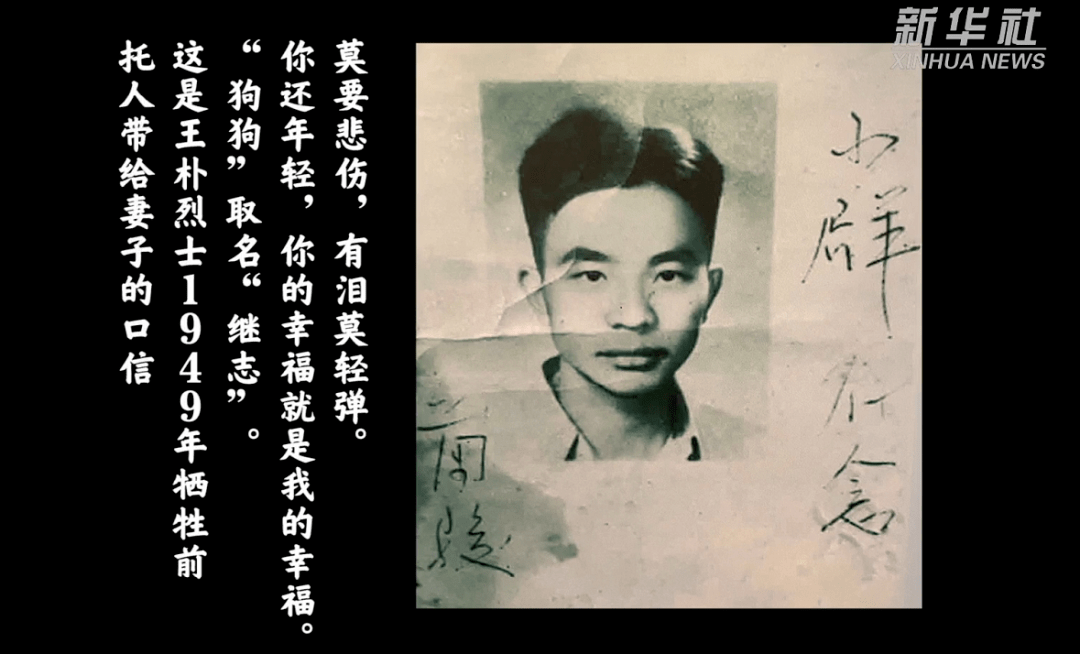 新华社
XINHUA NEWS
莫要悲伤，有泪莫轻弹。
你还年轻，你的幸福就是我的幸福。
“狗狗”取名“继志”。
这是王朴烈士1949年牺牲前
托人带给妻子的口信
小群念